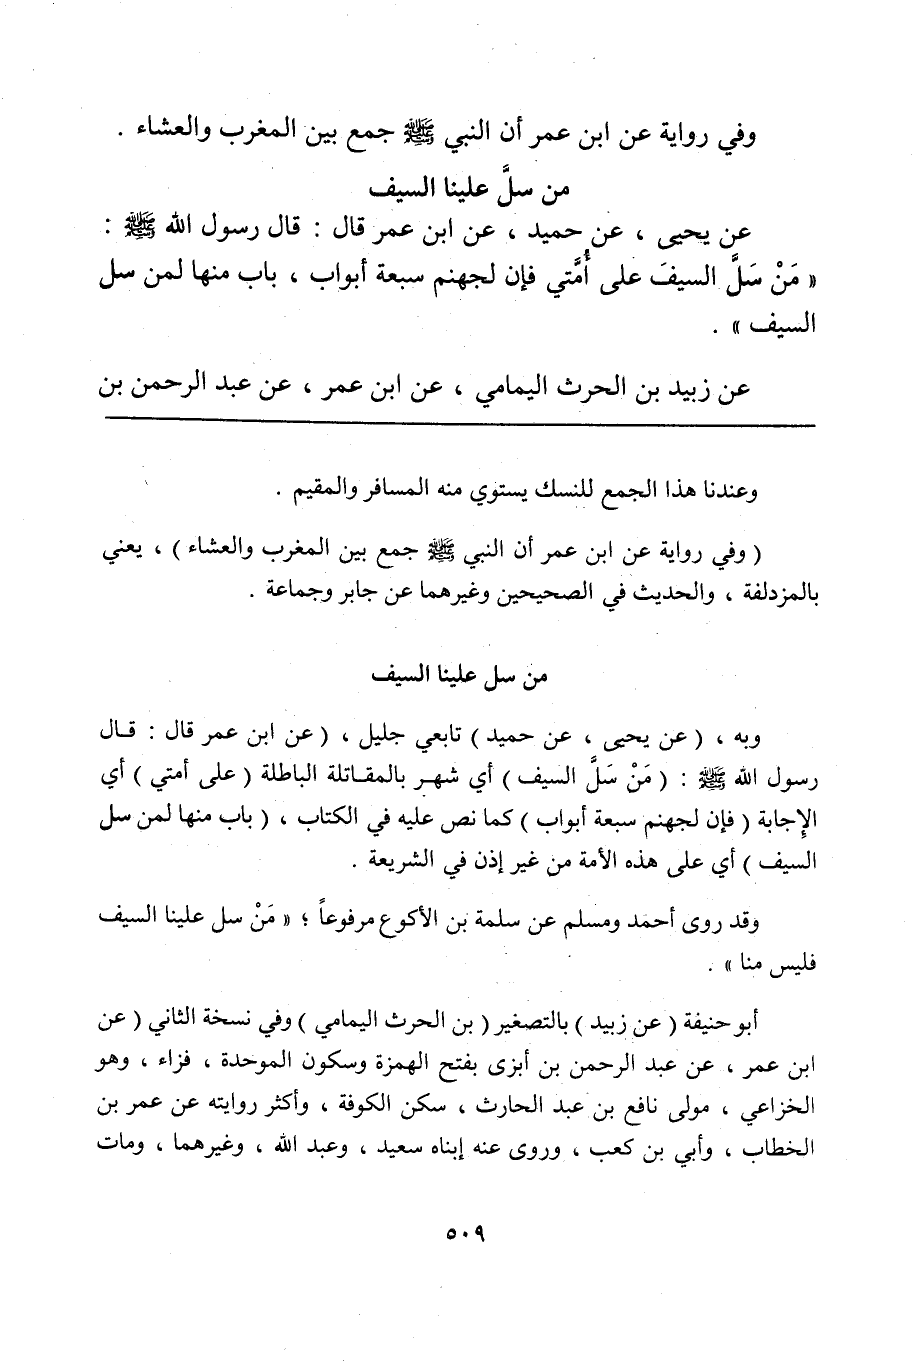 وفي رواية عن ابن عمر أن النبي ﷺ جمع بين المغرب والعشاء .
من سلَّ علينا السيف
عن يحيى ، عن حميد ، عن ابن عمر قال : قال رسول الله ﷺ :
« مَنْ سَلَّ السيفَ على أُمَّتي فإن لجهنم سبعة أبواب ، باب منها لمن سل
السيف » .
عن زبيد بن الحرث اليمامي ، عن ابن عمر ، عن عبد الرحمن بن
وعندنا هذا الجمع للنسك يستوي منه المسافر والمقيم .
( وفي رواية عن ابن عمر أن النبي ﷺ جمع بين المغرب والعشاء ) ، يعني
بالمزدلفة ، والحديث في الصحيحين وغيرهما عن جابر وجماعة .
من سل علينا السيف
وبه ، ( عن يحيى ، عن حميد ) تابعي جليل ، ( عن ابن عمر قال : قال
رسول الله ﷺ : ( مَنْ سَلَّ السيف ) أي شهر بالمقاتلة الباطلة ( على أمتي ) أي
الإجابة ( فإن لجهنم سبعة أبواب ) كما نص عليه في الكتاب ، ( باب منها لمن سل
السيف ) أي على هذه الأمة من غير إذن في الشريعة .
وقد روى أحمد ومسلم عن سلمة بن الأكوع مرفوعاً ؛ « مَنْ سل علينا السيف
فليس منا » .
أبو حنيفة ( عن زبيد ) بالتصغير ( بن الحرث اليمامي ) وفي نسخة الثاني ( عن
ابن عمر ، عن عبد الرحمن بن أبزى بفتح الهمزة وسكون الموحدة ، فزاء ، وهو
الخزاعي ، مولى نافع بن عبد الحارث ، سكن الكوفة ، وأكثر روايته عن عمر بن
الخطاب ، وأبي بن كعب ، وروى عنه إبناه سعيد ، وعبد الله ، وغيرهما ، ومات
٥٠٩